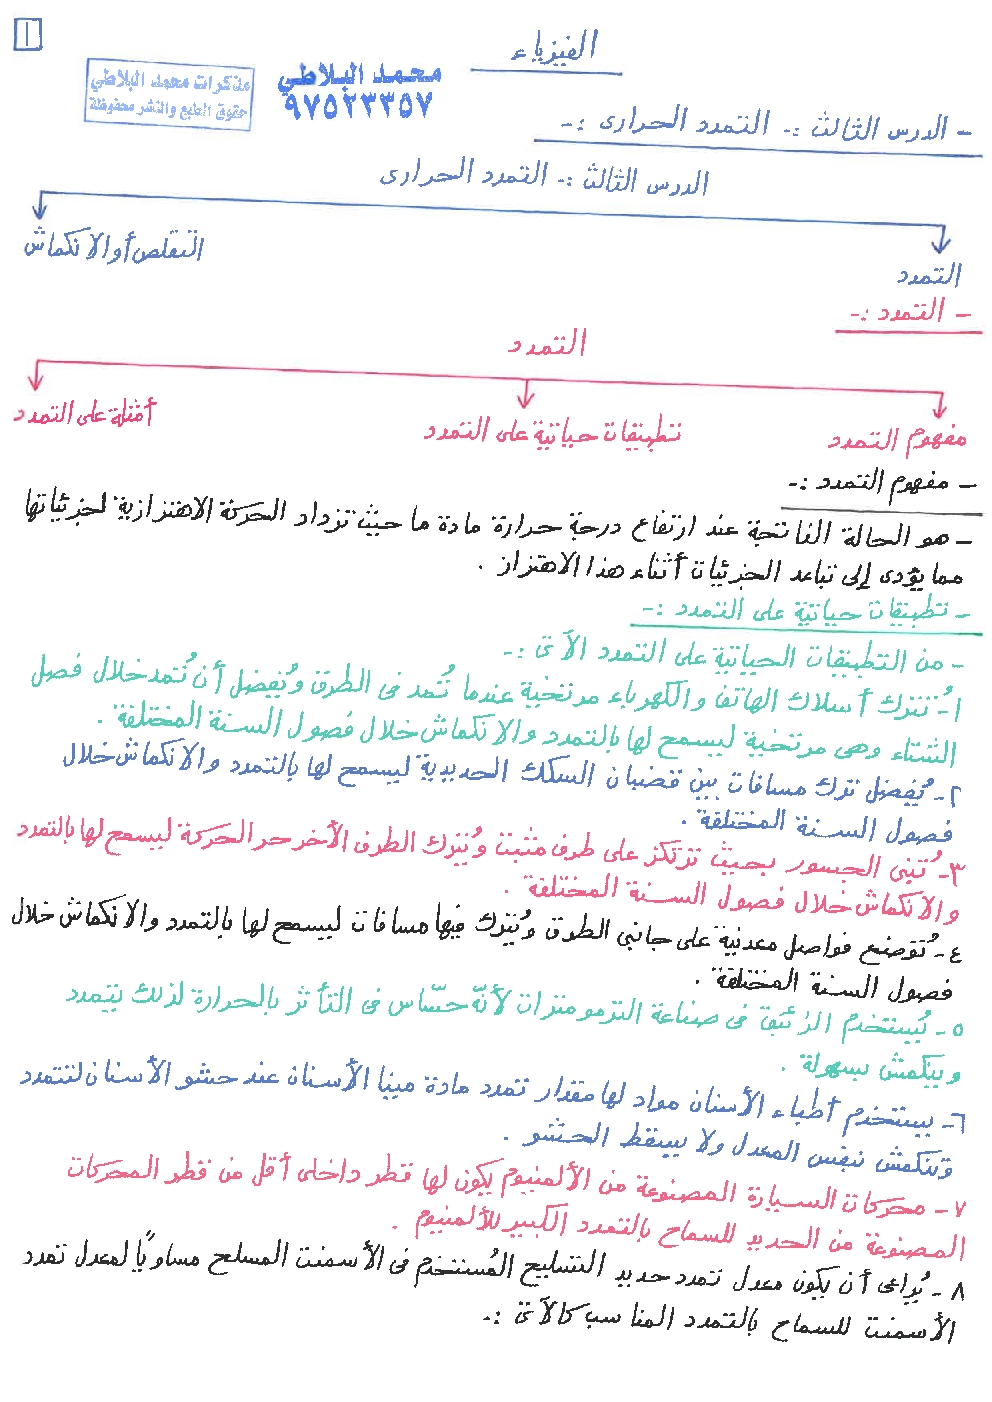 ١
الفيزياء
مذكرات محمد البلاطي
حقوق الطبع والنشر محفوظة
محمد البلاطي
٩٧٥٢٣٣٥٧
- الدرس الثالث :- التمدد الحرارى :-
الدرس الثالث :- التمدد الحرارى
التمدد
التقلص أو الانكماش
- التمدد :-
التمدد
مفهوم التمدد
تطبيقات حياتية على التمدد
أمثلة على التمدد
- مفهوم التمدد :-
- هو الحالة الناتجة عند ارتفاع درجة حرارة مادة ما حيث تزداد الحركة الاهتزازية لجزئياتها
مما يؤدى إلى تباعد الجزئيات أثناء هذا الاهتزاز .
- تطبيقات حياتية على التمدد :-
- من التطبيقات الحياتية على التمدد الآتى :-
١- تُترك أسلاك الهاتف والكهرباء مرتخية عندما تُمد فى الطرق ويُفضل أن تُمد خلال فصل
الشتاء وهى مرتخية ليسمح لها بالتمدد والانكماش خلال فصول السنة المختلفة .
٢- يُفضل ترك مسافات بين قضبان السكك الحديدية ليسمح لها بالتمدد والانكماش خلال
فصول السنة المختلفة .
٣- تُبنى الجسور بحيث ترتكز على طرف مثبت ويُترك الطرف الأخر حر الحركة ليسمح لها بالتمدد
والانكماش خلال فصول السنة المختلفة .
٤- تُوضع فواصل معدنية على جانبى الطرق ويُترك فيها مسافات ليسمح لها بالتمدد والانكماش خلال
فصول السنة المختلفة .
٥- يُستخدم الزئبق فى صناعة الترمومترات لأنّه حسّاس فى التأثر بالحرارة لذلك يتمدد
وينكمش بسهولة .
٦- يستخدم أطباء الأسنان مواد لها مقدار تمدد مادة مينا الأسنان عند حشو الأسنان لتتمدد
وتنكمش نفس المعدل ولا يسقط الحشو .
٧- محركات السيارة المصنوعة من الألمنيوم يكون لها قطر داخلى أقل من قطر المحركات
المصنوعة من الحديد للسماح بالتمدد الكبير للألمنيوم .
٨- يُراعى أن يكون معدل تمدد حديد التسليح المُستخدم فى الأسمنت المسلح مساويًا لمعدل تمدد
الأسمنت للسماح بالتمدد المناسب كالآتى :-